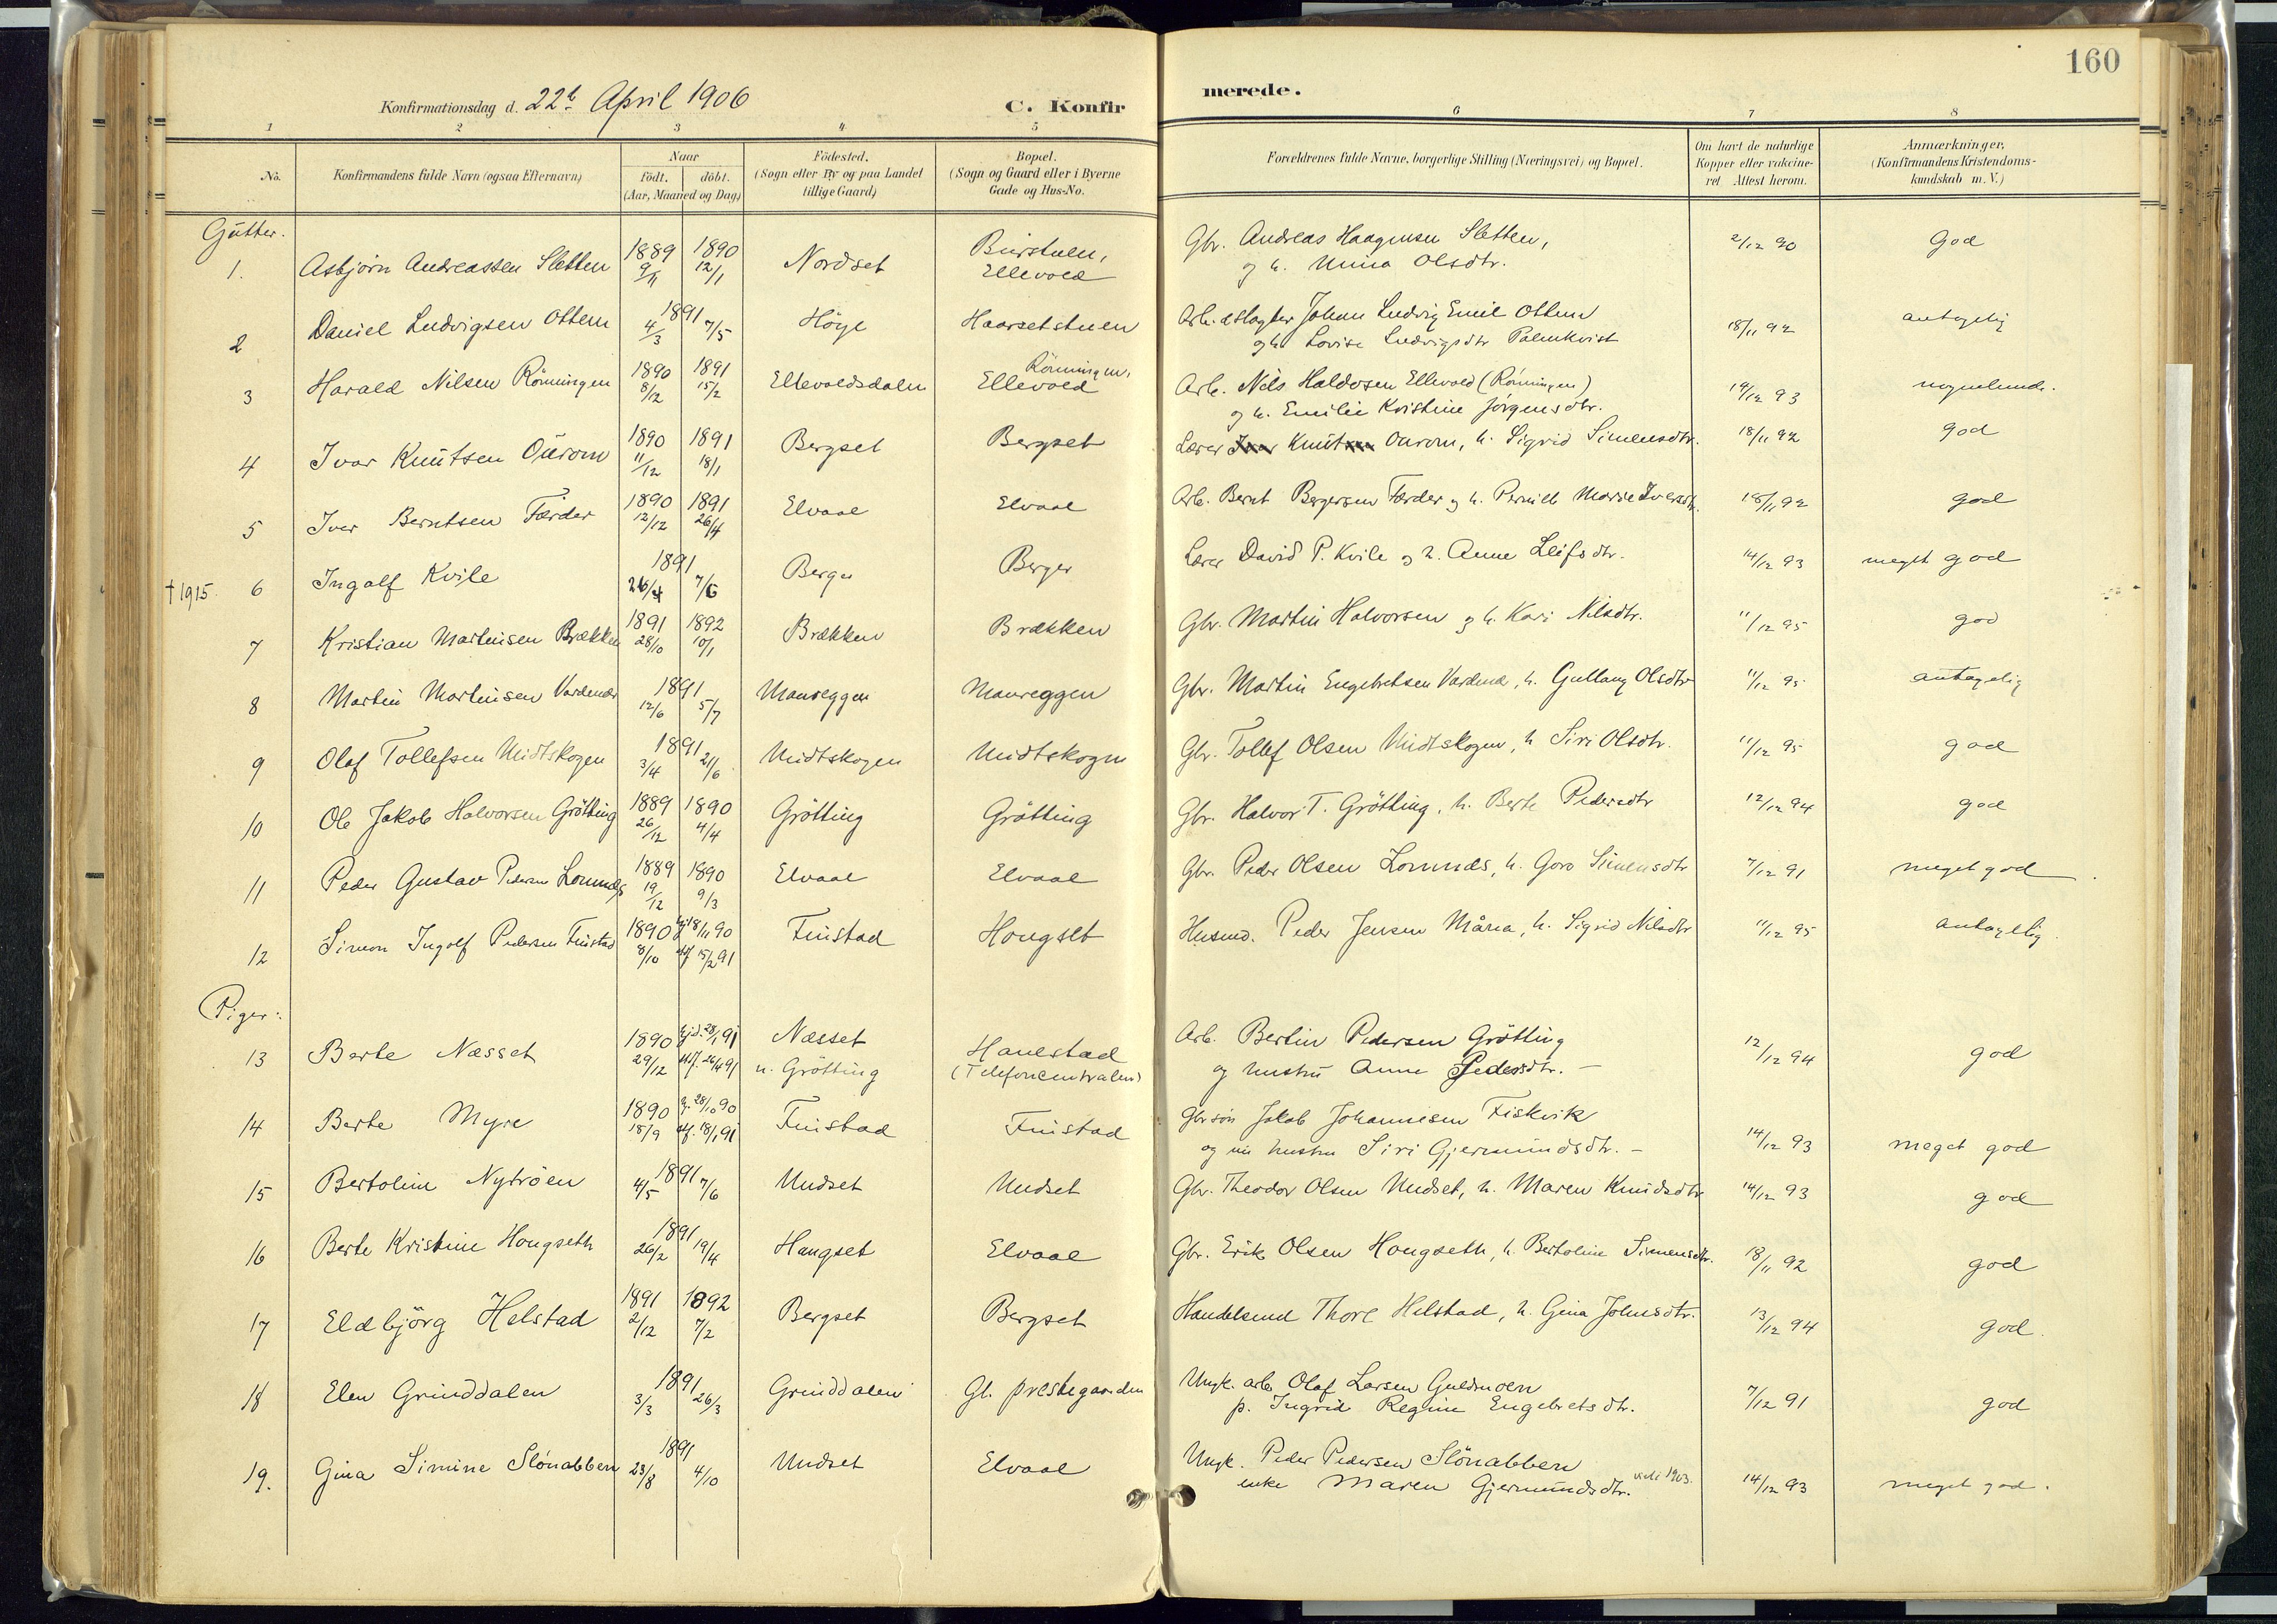 160
Konfirmationsdag d. 22de April 1906
C. Konfirmerede.
1 2 3 4 5 6 7 8
No. Konfirmandens fulde Navn (ogsaa Efternavn) Naar født. døbt. (Aar, Maaned og Dag) Fødested. (Sogn eller By og paa Landet tillige Gaard) Bopæl. (Sogn og Gaard eller i Byerne Gade og Hus-No. Forældrenes fulde Navne, borgerlige Stilling (Næringsvei) og Bopæl. Om havt de naturlige Kopper eller vakcineret Attest herom. Anmærkninger, (Konfirmandens Kristendomskundskab m. V.)
Gutter.
1. Asbjörn Andreassen Sletten 1889 9/11 1890 12/1 Nordset Burstuen, Ellevold Gbr. Andreas Haagensen Sletten, og h. Unina Olsdtr. 2/12 90 God
2 Daniel Ludvigsen Ottem 1891 4/3 7/5 Höye Haarsetstuen Arb. Johan Ludvig Emil Ottem og h. Lovise Ludvigsdtr Palmkvist 18/11 92 antagelig
3 Harald Nilsen Rönningen 1890 8/12 1891 15/2 Ellevoldsdalen Rönningen, Ellevold Arb. Nils Haldosen Ellevold (Rönningen) og h. Emilie Kristine Jörgensdtr. 14/12 93 nogenlunde.
4 Ivar Knutsen Ourom 1890 11/12 1891 18/1 Bergset Bergset Lærer Knut Ourom, h. Sigrid Simensdtr. 18/11 92 god
5 Iver Berntsen Færder 1890 12/12 1891 26/4 Elvaal Elvaal Arb. Bernt Bergersen Færder og h. Pernille Marie Iversdtr. 18/11 92 god
†1915. 6 Ingolf Kvile 1891 26/4 7/6 Berger Berger Lærer David P. Kvile og h. Anne Leifsdtr. 14/12 93 meget god
7 Kristian Martinsen Brækken 1891 28/10 1892 10/1 Brækken Brækken Gbr. Martin Halvorsen og h. Kari Nilsdtr. 11/12 95 god
8 Martin Martinsen Vardenær 1891 12/6 5/7 Maureggen Maureggen Gbr. Martin Engebretsen Vardenæ, h. Gullaug Olsdtr 11/12 95 antagelig
9 Olaf Tollefsen Midtskogen 1891 3/4 21/6 Midtskogen Midtskogen Gbr. Tollef Olsen Midtskogen, h Siri Olsdtr. 11/12 95 god
10 Ole Jakob Halvorsen Grötting 1889 26/12 1890 4/4 Grötting Grötting Gbr. Halvor T. Grötting, h. Berte Pedersdtr 12/12 94 god
11 Peder Gustav Pedersen Lomnæs 1889 19/12 1890 9/3 Elvaal Elvaal Gbr. Peder Olsen Lomnæs, h. Goro Simensdtr 7/12 91 meget god
12 Simon Ingolf Pedersen Finstad 1890 8/10 18/11 90 15/2 91 Finstad Hougset Husmd. Peder Jensen Måna, h. Sigrid Nilsdtr 11/12 95 antagelig.
Piger:
13 Berte Næsset 1890 29/12 hjd. 28/1 91 stf. 26/4 91 Næsset u. Grötting Hanestad (Telefoncentralen) Arb. Bertin Pedersen Grötting og hustru Anne Pedersdtr. – 12/12 94 god
14 Berte Myre 1890 18/9 28/10 90 stf. 18/1 91 Finstad Finstad Gbrsön Jakob Johannesen Fiskvik og nu hustru Siri Gjermundsdtr. – 14/12 93 meget god
15 Bertoline Nytröen 1891 4/5 7/6 Undset Undset Gbr. Theodor Olsen Undset, h. Maren Knudsdtr 14/12 93 god
16 Berte Kristine Hougseth 1891 26/2 19/4 Haugset Elvaal Gbr. Erik Olsen Hougseth, h. Bertoline Simensdtr. 18/11 92 god
17 Eldbjörg Helstad 1891 2/12 1892 7/2 Bergset Bergset Handelsmd Thore Helstad, h. Gina Johnsdtr. 13/12 94 god.
18 Elen Grinddalen 1891 3/3 26/3 Grinddalen Gl. prestegaarden Ungk. arb. Olaf Larsen Guldmoen p. Ingrid Regine Engebretsdtr. 7/12 91 god
19. Gina Simine Slönabben 1891 23/8 4/10 Undset Elvaal Ungk. Peder Pedersen Slönabben enke Maren Gjermundsdtr. viede 1903. 14/12 93 meget god.